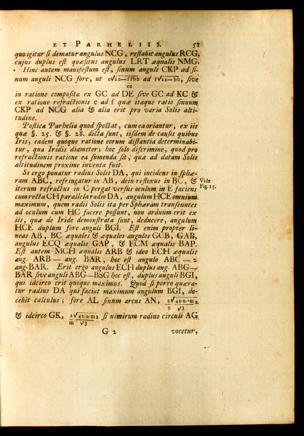 ET PARHELIIS. 51
quo igitur si dematur angulus NCG, restabit angulus RCG,
cujus duplus est quæsitus angulus LRT æqualis NMG.
Hinc autem manifestum est, sinum anguli CKP ad si-
num anguli NCG fore, ut
in ratione composita ex GC ad DE sive GC ad KC &
ex ratione refractionis c ad f quæ itaque ratio sinuum
CKP ad NCG alia & alia erit pro varia Solis alti-
tudine.
Postica Parhelia quod spectat, cum ea oriantur, ex iis
quæ §. 25. & §. 28. dicta sunt, iisdem de causis quibus
Iris; eadem quoque ratione eorum distantia determinabi-
tur, qua Iridis diameter: hoc solo discrimine, quod pro
refractionis ratione ea sumenda sit, quæ ad datam Solis
altitudinem proxime inventa fuit.
Si ergo ponatur radius Solis DA, qui incidens in sphæ-
ram ABC, refringatur in AB, dein reflexus in BC, &
Vide
Fig. 15.
iterum refractus in C pergat versus oculum in E, faciens
cum recta CH parallela radio DA, angulum HCE omnium
maximum, quem radii Solis ita per Sphæram transeuntes
ad oculum cum HC facere possunt, non arduum erit ex
iis, quæ de Iride demonstrata sunt, deducere, angulum
HCE duplum fore anguli BGI. Est enim propter li-
neas AB, BC æquales & æquales angulos GCB, GAB,
angulus ECQ æqualis GAP, & ECM æqualis BAP.
Est autem MCH æqualis ARB & ideo ECH æqualis
ang. ARB — ang. BAR; hoc est angulo ABC — 2
ang. BAR. Erit ergo angulus ECH duplus ang. ABG—
BAR sive anguli ABG—BSG hoc est, duplus anguli BGI,
qui idcirco erit quoque maximus. Quod si porro quæra-
tur radius DA qui faciat maximum angulum BGI, do-
cebit calculus; fore AL sinum arcus AN,
& idcirco GK, si nimirum radius circuli AG
G 2 vocetur,